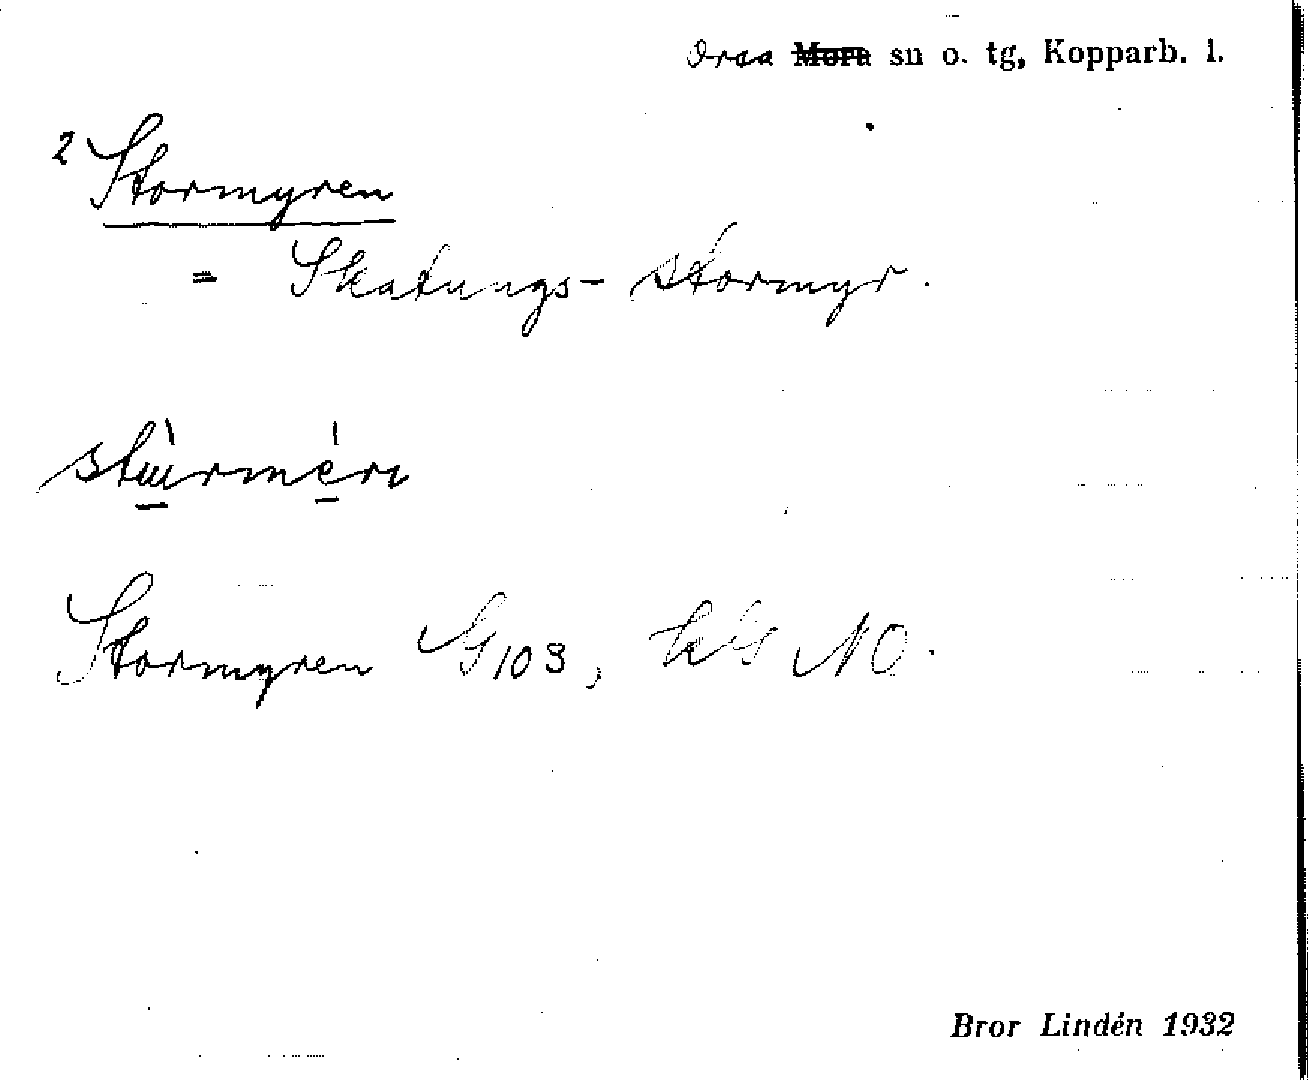 Orsa Mora sn o. tg, Kopparb. l.
2 Stormyren
= Skatungs-stormyr.
Stormyren G103, NO.
Bror Lindén 1932